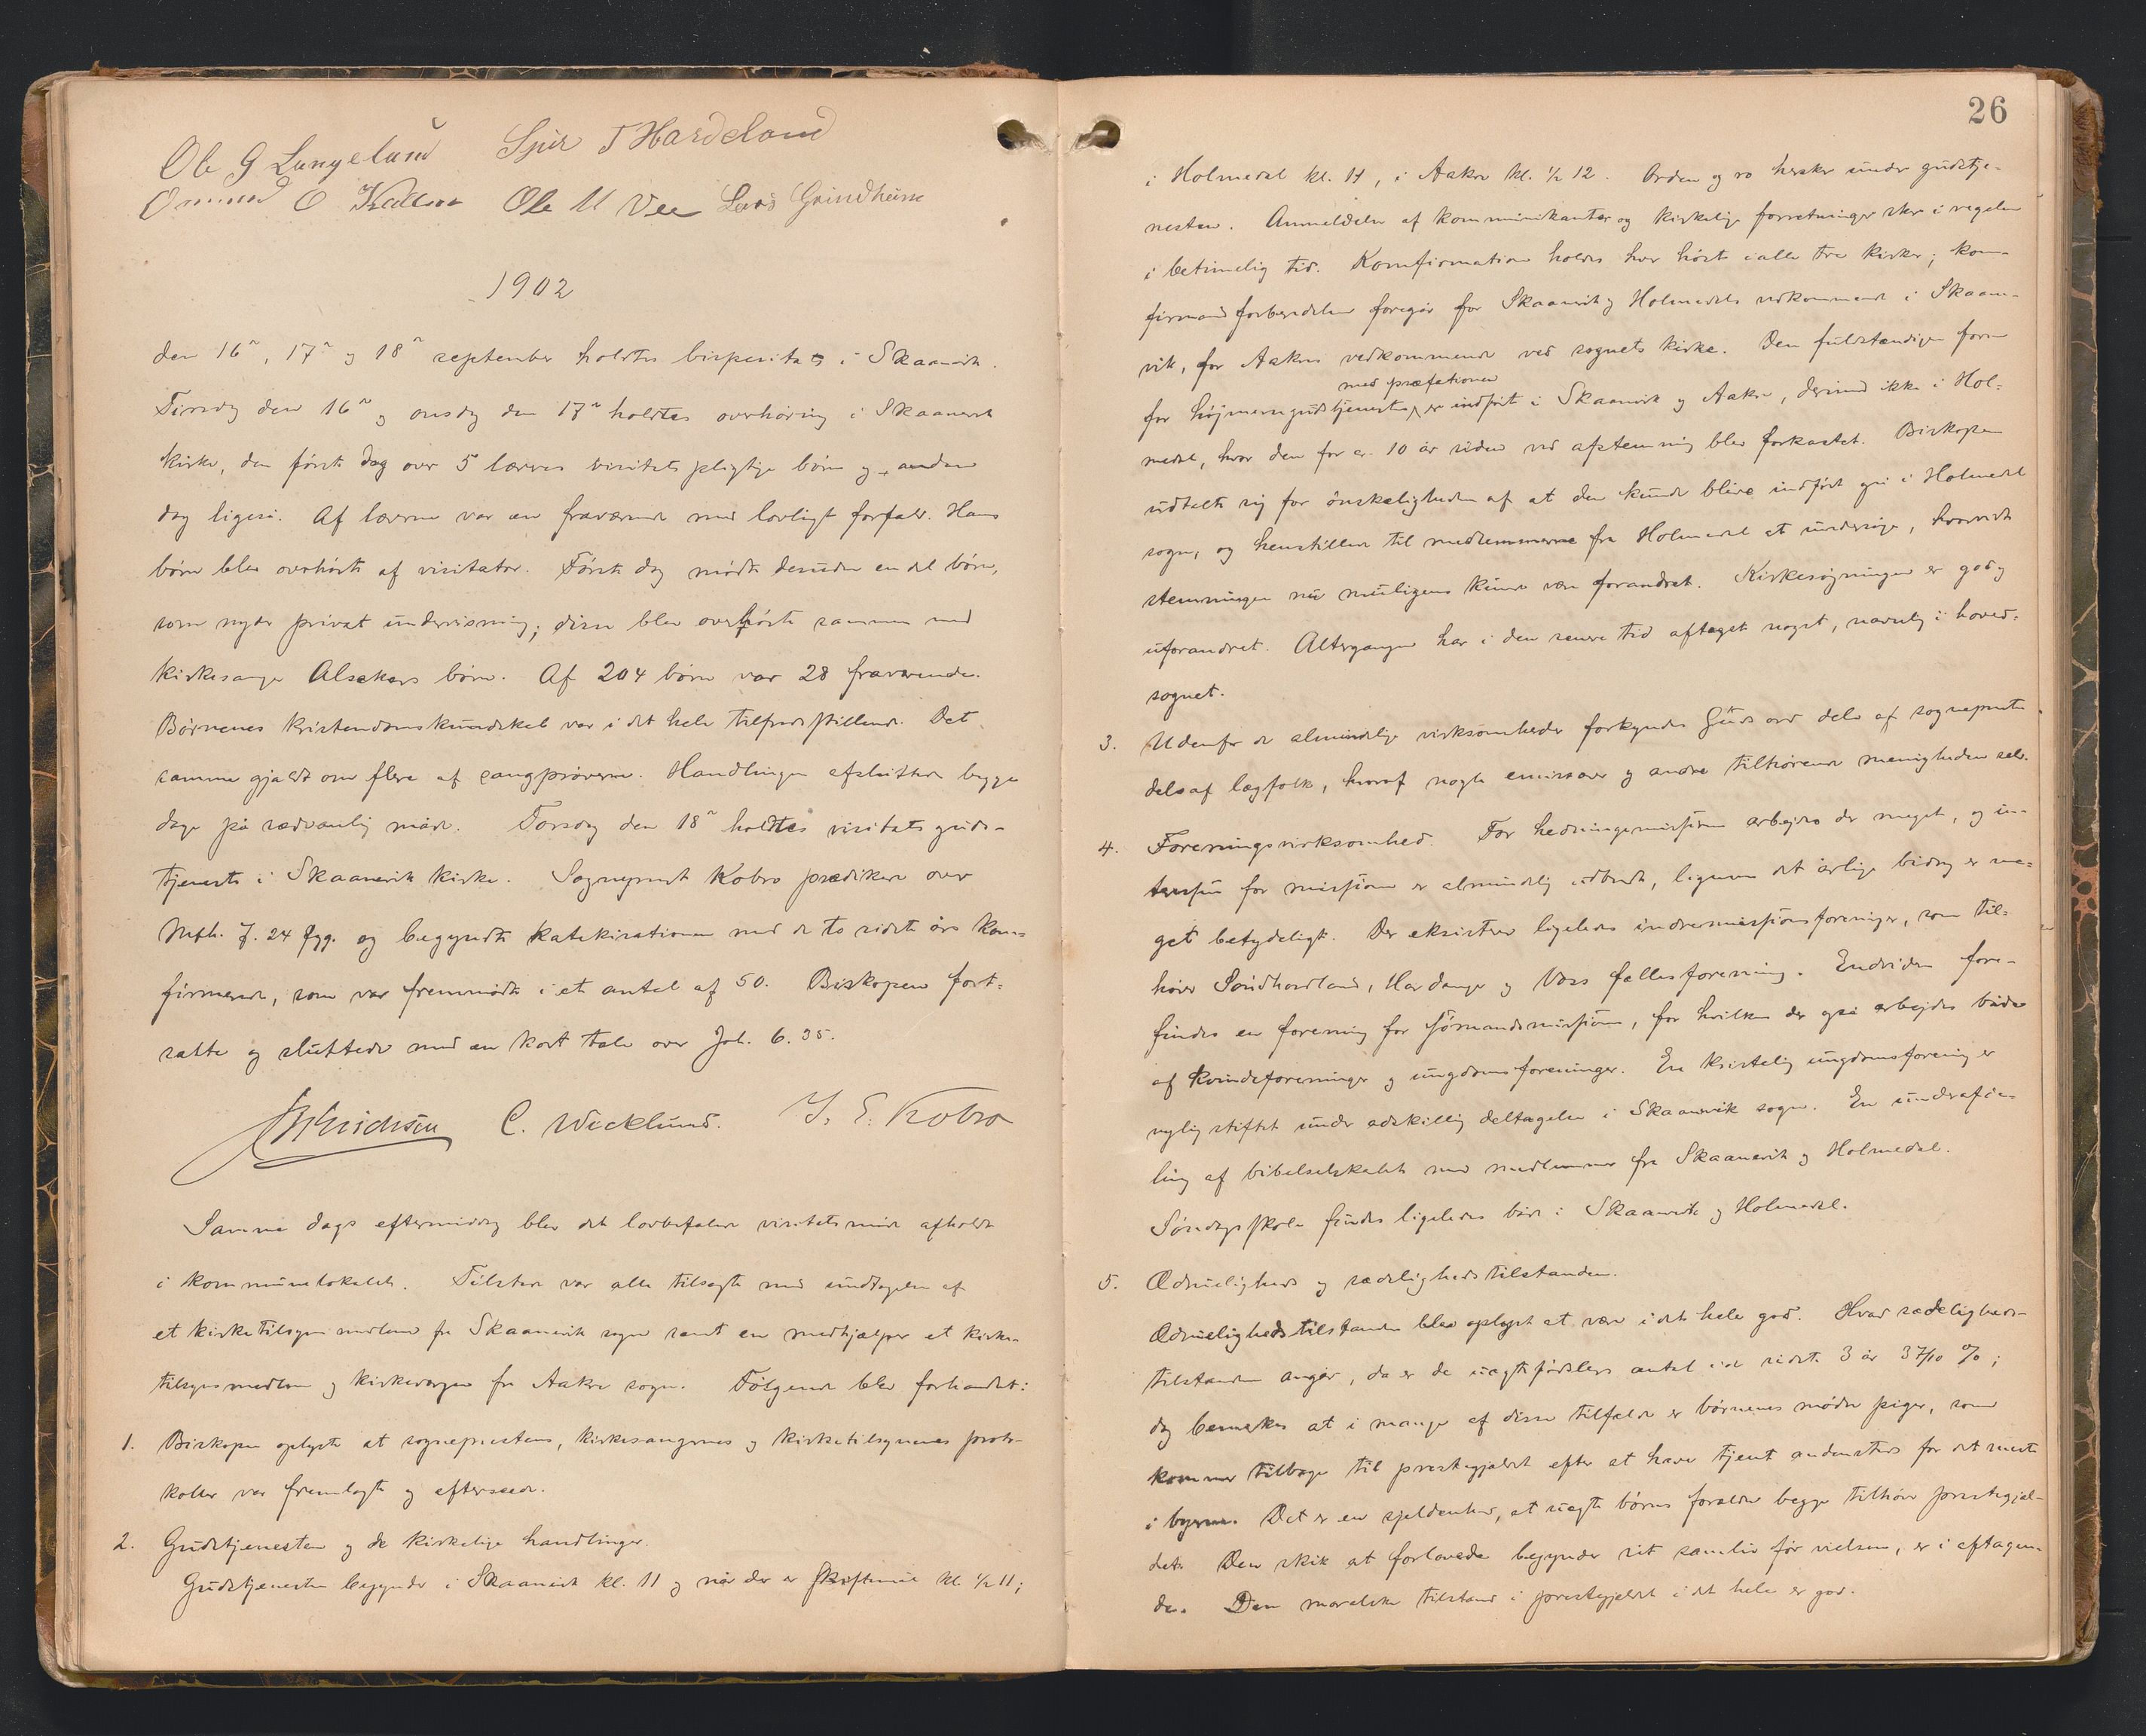 Ole G Langeland Sjur T Hardeland
Osmund O Ole M Vee Lars Grindheim
1902
den 16n, 17n og 18n september holdtes bispevisitats i Skaanevik.
Tirsdag den 16n og onsdag den 17n holdtes overhøring i Skaanevik
kirke, den første dag over 5 læreres visitatspligtige børn og anden
dag ligeså. Af lærerne var en fraværende med lovligt forfald. Hans
børn blev overhørte af visitator. Første dag mødte desuden en del børn,
som nyder privat undervisning; disse blev overhørte sammen med
kirkesanger Alsakers børn. Af 204 børn var 28 fraværende.
Børnenes kristendomskundskab var i det hele tilfredsstillende. Det
samme gjaldt om flere af sangprøverne. Handlingen afsluttedes begge
dage på sædvanlig måde. Torsdag den 18n holdtes visitatsguds-
tjeneste i Skaanevik kirke. Sogneprest Kobro prædikede over
Mth. 7. 24 fgg. og begyndte katekisationen med de to sidste års kon-
firmerede, som var fremmødte i et antal af 50. Biskopen fort-
satte og sluttede med en kort tale over Joh. 6. 35.
C. Wecklund. J. E. Kobro
Samme dags eftermiddag blev det lovbefalede visitatsmøde afholdt
i kommunelokalet. Tilstede var alle tilsagte med undtagelse af
et kirketilsynsmedlem fra Skaanevik sogn samt en medhjælper et kirke-
tilsynsmedlem og kirkeværgen fra Aakre sogn. Følgende blev forhandlet:
1. Biskopen oplyste at sogneprestens, kirkesangernes og kirketilsynenes proto-
koller var fremlagte og efterseede.
2. Gudstjenesten og de kirkelige handlinger.
Gudstjenesten begynder i Skaanevik kl. 11 og når der er skriftemål kl. ½11;
26
i Holmedal kl. 11, i Aakre kl. ½ 12. Orden og ro hersker under gudstje-
nesten. Anmeldelse af kommunikanter og kirkelige forretninger sker i regelen
i betimelig tid. Konfirmation holdes hver høst i alle tre kirker; kon-
firmandforberedelsen foregår for Skaanevik og Holmedals vedkommende i Skaane-
vik, for Aakres vedkommende ved sognets kirke. Den fuldstændige form
med præfationen
for højmessegudstjeneste er indført i Skaanevik og Aakre, derimod ikke i Hol-
medal, hvor den for ca. 10 år siden ved afstemning blev forkastet. Biskopen
udtalte sig for ønskeligheden af at den kunde blive indført også i Holmedal
sogn, og henstillede til medlemmerne fra Holmedal at undersøge, hvorvidt
stemningen nu muligens kunde være forandret. Kirkesøgningen er god og
uforandret. Altergangen har i den senere tid aftaget noget, navnlig i hoved-
sognet.
3. Udenfor de almindelige virksomheder forkyndes Guds ord dels af sognepresten
dels af lægfolk, hvoraf nogle emissærer og andre tilhørende menigheden selv.
4. Foreningsvirksomhed. For hedningemissionen arbejdes der meget, og in-
teressen for missionen er almindelig udbredt, ligesom det årlige bidrag er me-
get betydeligt. Der eksisterer ligeledes indremissionsforeninger, som til-
hører Søndhordland, Hardanger og Voss fællesforening. Endvidere fore-
findes en forening for sømandsmission, for hvilken der også arbejdes både
af kvindeforeninger og ungdomsforeninger. En kristelig ungdomsforening er
nylig stiftet under adskillig deltagelse i Skaanevik sogn. En underafde-
ling af bibelselskabet med medlemmer fra Skaanevik og Holmedal.
Søndagsskole findes ligeledes både i Skaanevik og Holmedal.
5. Ædrueligheds og sædelighedstilstanden.
Ædruelighedstilstanden blev oplyst at være i det hele god. Hvad sædeligheds-
tilstanden angår, da er de uægte fødslers antal i de sidste 3 år 3 7/10 %;
dog bemerkes at i mange af disse tilfælde er børnenes mødre piger, som
kommer tilbage til prestegjeldet efter at have tjent andensteds for det meste
i byerne. Det er en sjeldenhed, at uægte børns forældre begge tilhører prestegjel-
det. Den skik at forlovede begynder sit samliv før vielsen, er i aftagen-
de. Den moralske tilstand i prestegjeldet i det hele er god.